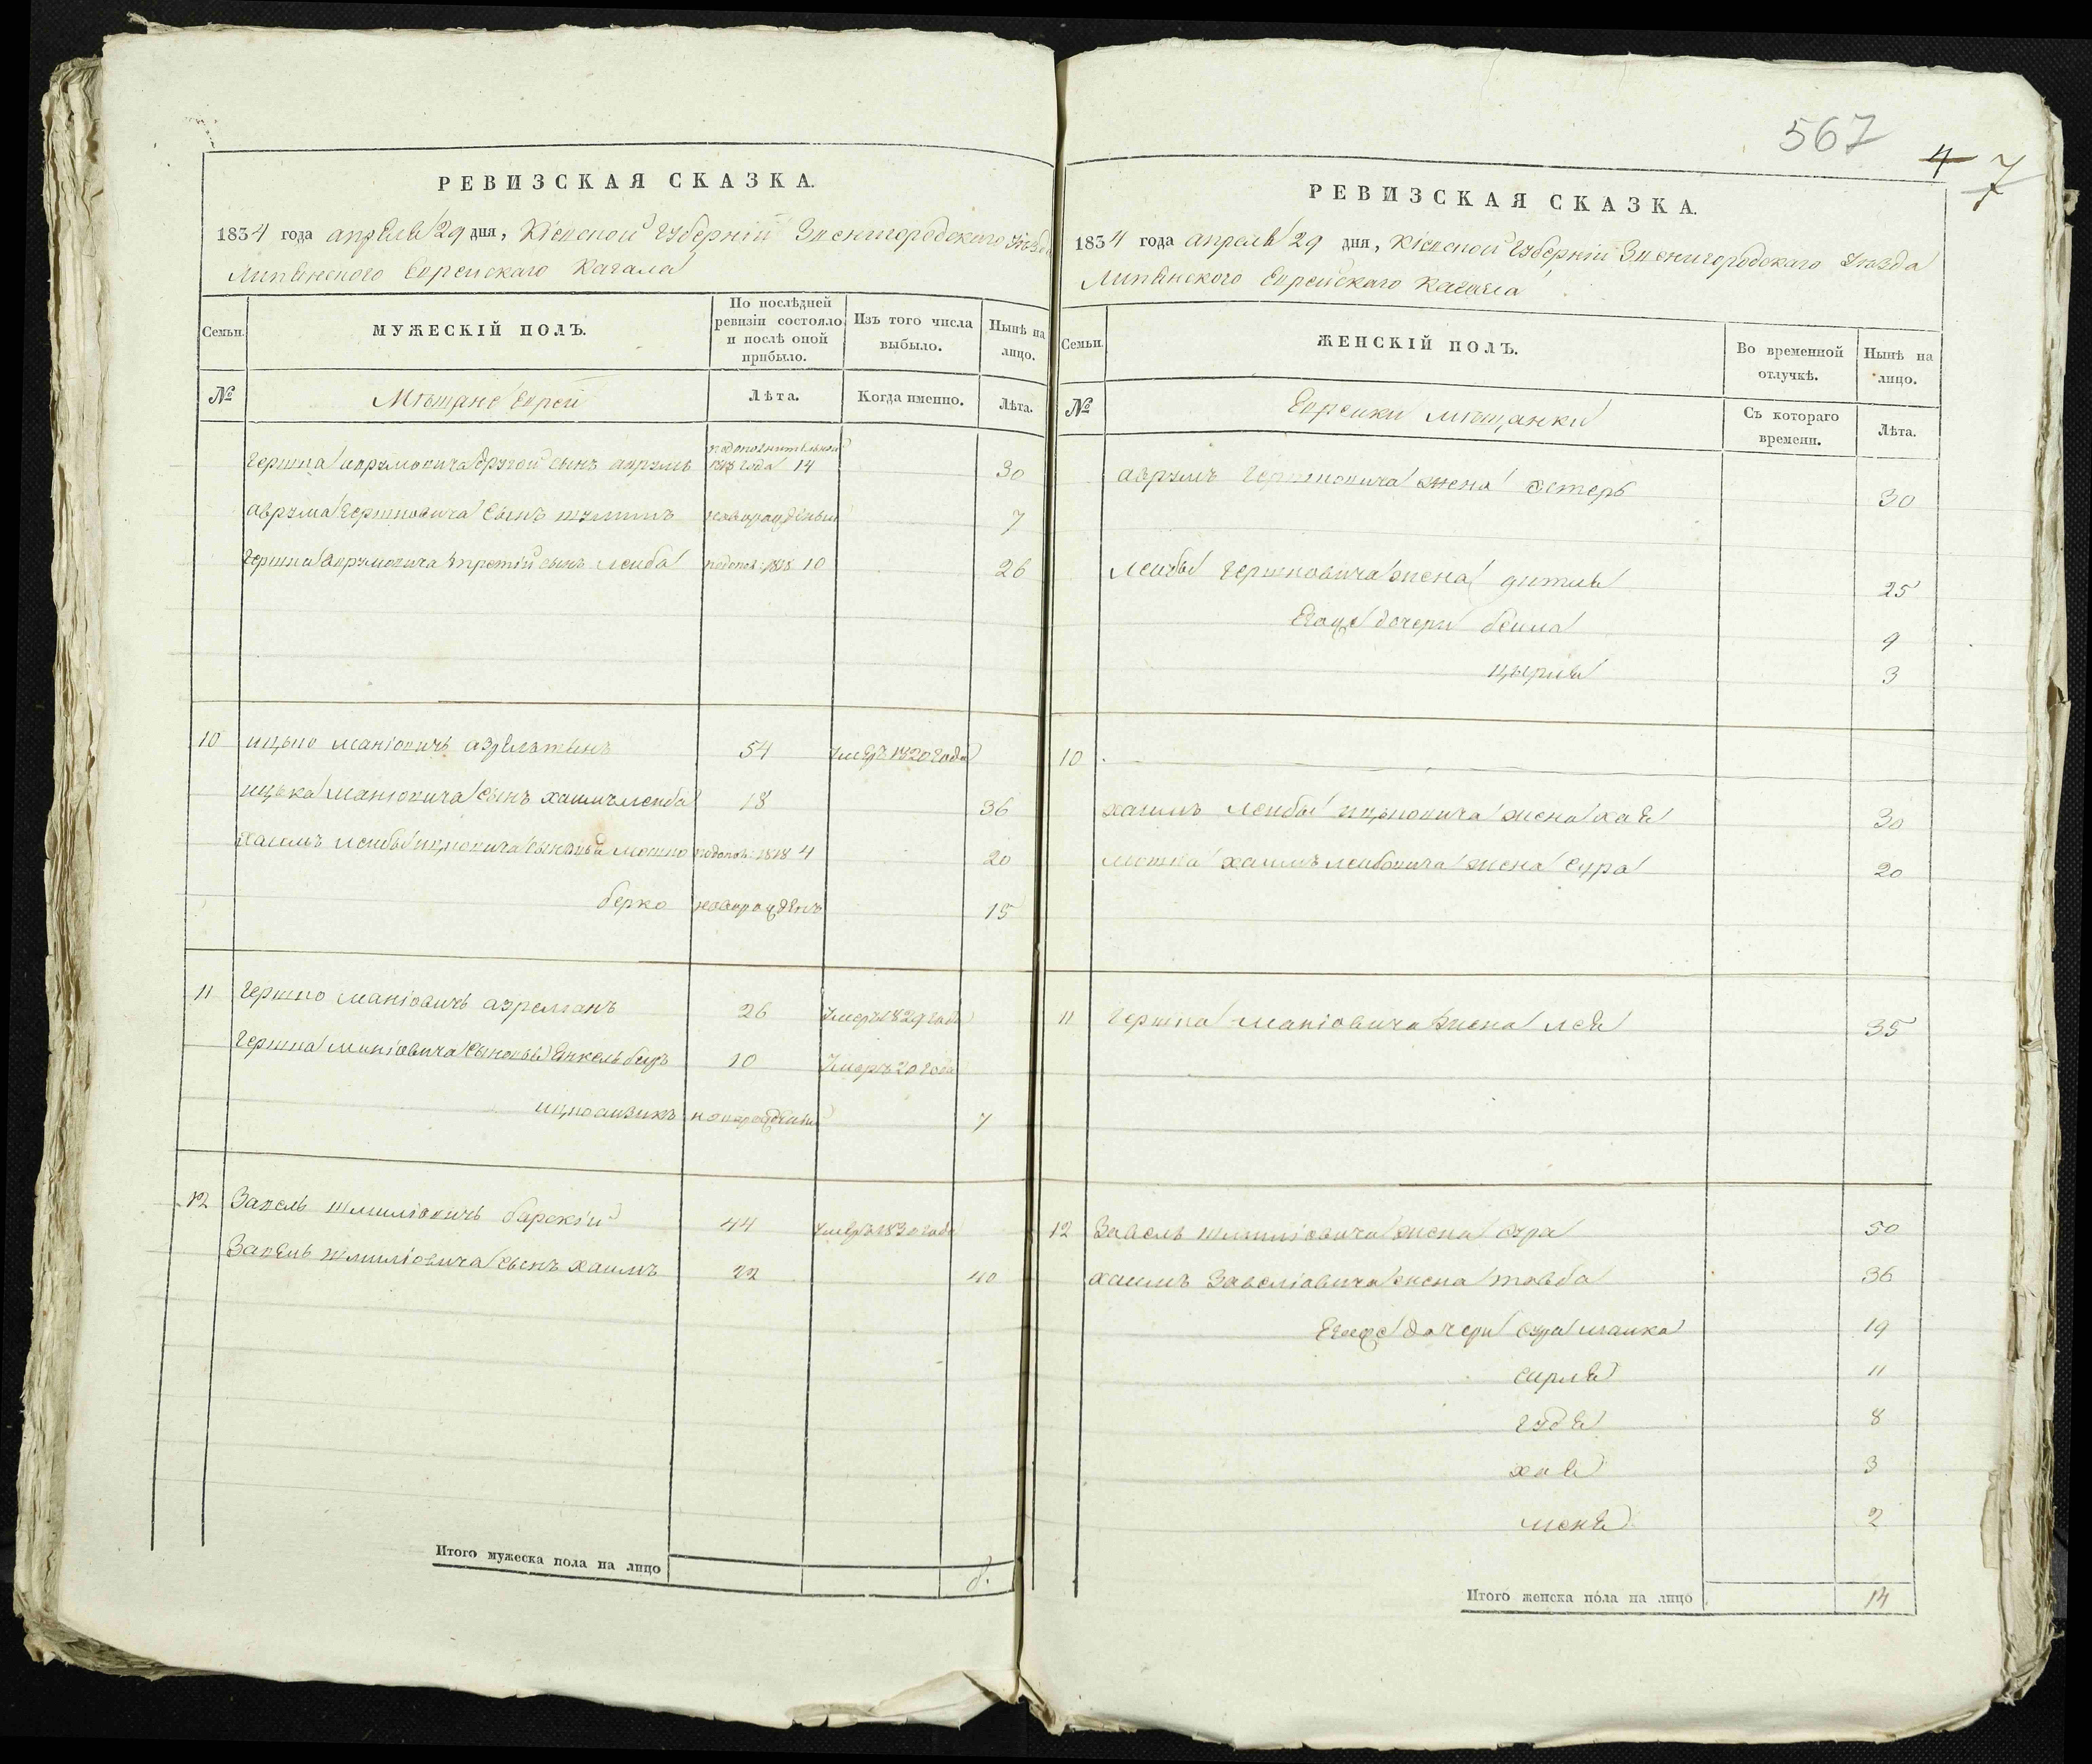 РЕВИЗСКАЯ СКАЗКА.
1834 года апреля 29 дня, Кіевской Губерніи Звенигородского Уезда
Липянского Еврейскаго Кагала
Семьи.
МУЖЕСКІЙ ПОЛЪ.
По послѣдней ревизіи состояло и послѣ оной прибыло.
Изъ того числа выбыло.
Нынѣ на лицо.
№
Мѣщане Евреи
Лѣта.
Когда именно.
Лѣта.
Гершка Аврумовича другой сынъ Аврумъ 1818 года 14 30
Аврума Гершковича сынъ новорожденный 7
Гершка Аврумовича третій сынъ Лейба 1818 10 26
10 Ицько Маніовичъ 54 умеръ 1820 года
Ицька Маніовича сынъ Хаимъ Лейба 18 36
Хаимъ Лейбы Ицковича сыновья Мошко 1818 4 20
Берко новорожденъ 15
11 Гершко Маніовичъ 26 умеръ 1829 года
Гершка Маніовича сыновья Янкель 10 умеръ 20 года
Ицко Аизикъ новорожденный 7
12 Завель Шмиліовичъ Барскій 44 умеръ 1830 года
Завель Шмиліовича сынъ Хаимъ 22 40
Итого мужеска пола на лицо 8.
567
4 7
РЕВИЗСКАЯ СКАЗКА.
1834 года апреля 29 дня, Кіевской Губерніи Звенигородскаго Уезда
Липянского Еврейскаго Кагала
Семьи.
ЖЕНСКІЙ ПОЛЪ.
Во временной отлучкѣ.
Нынѣ на лицо.
№
Еврейки мещанки
Съ котораго времени.
Лѣта.
Аврумъ Гершковича жена Эстеръ 30
Лейбы Гершковича жена 25
Егоже дочери Бейла 9
Цырля 3
10
Хаимъ Лейбы Ицьковича жена Хая 30
Мошка Хаимъ Лейбовича жена Сура 20
11 Гершка Маніовича жена Лея 35
12 Завель Шмиліовича жена Сура 50
Хаимъ Завеліовича жена Товба 36
Егоже дочери Сура 19
Сирля 11
Гудя 8
Хая 3
2
Итого женска пола на лицо 14